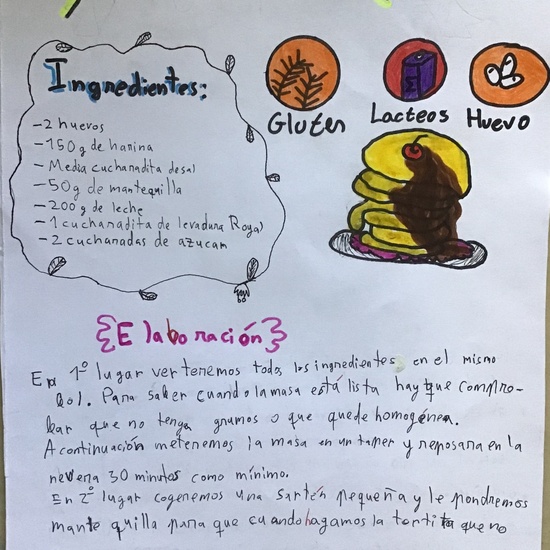 Ingredientes:
-2 huevos
-150g de harina
-Media cucharadita de sal
-50g de mantequilla
-200g de leche
-1 cucharadita de levadura Royal
-2 cucharadas de azucar
Gluten
Lacteos
Huevo
{Elaboración}
En 1º lugar verteremos todos los ingredientes en el mismo
bol. Para saber cuando la masa está lista hay que compro-
bar que no tenga grumos o que quede homogénea.
A continuación meteremos la masa en un taper y reposara en la
nevera 30 minutos como mínimo.
En 2º lugar cogeremos una sartén pequeña y le pondremos
mantequilla para que cuando hagamos la tortita que no